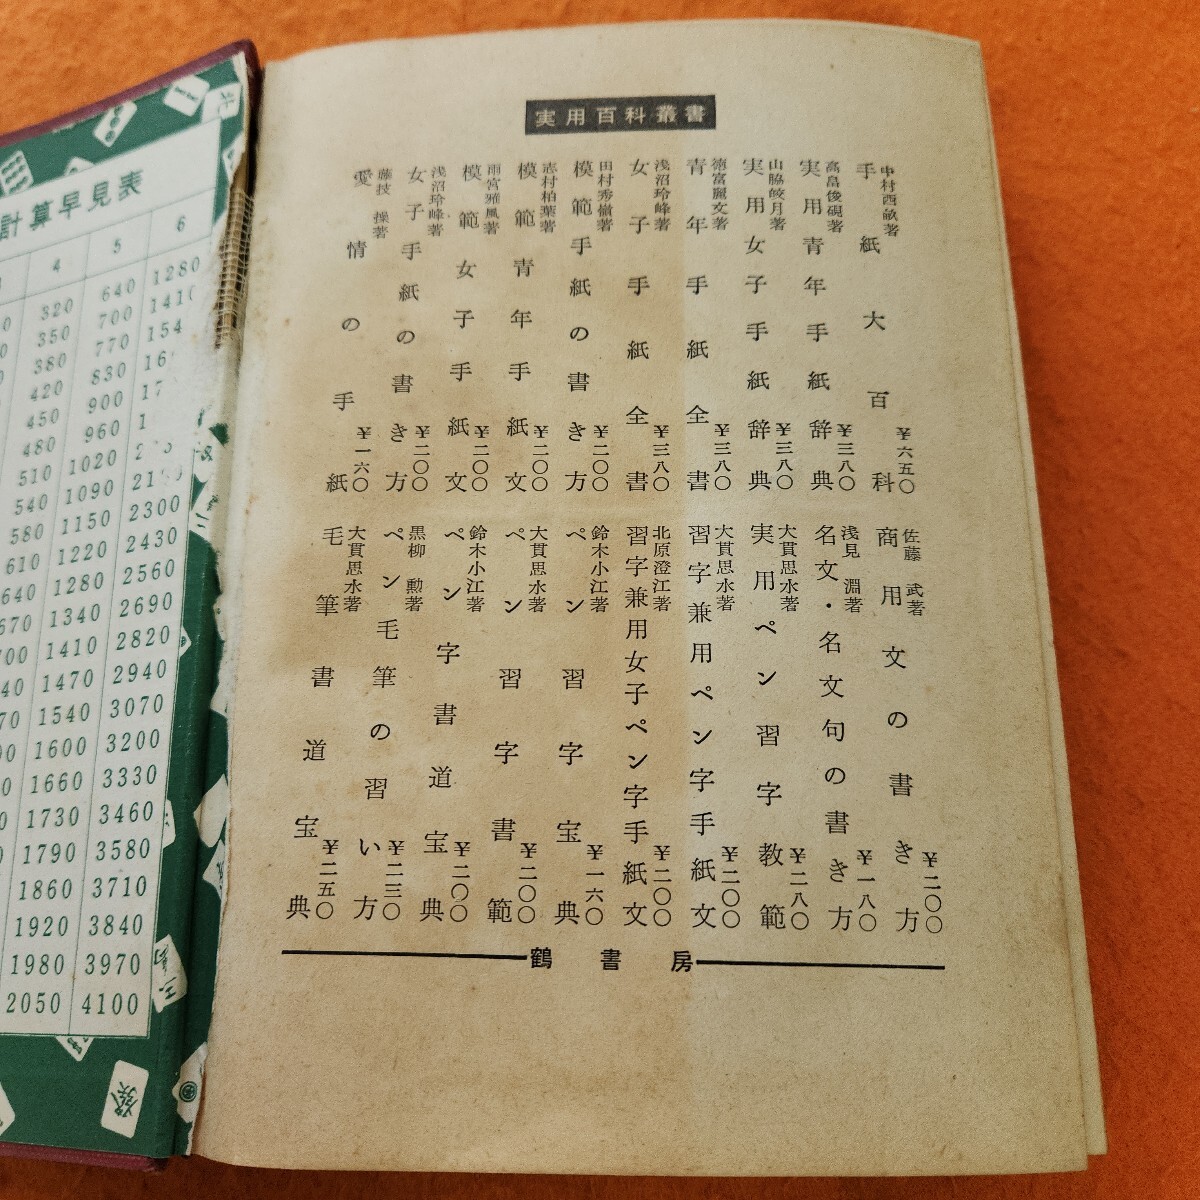 実用百科叢書
中村西畝著
手紙大百科
¥六五〇
高畠俊硯著
実用青年手紙辞典
¥三八〇
山脇皎月著
実用女子手紙辞典
¥三八〇
徳富麗文著
青年手紙全書
¥三八〇
浅沼玲峰著
女子手紙全書
¥三八〇
田村秀嶺著
模範手紙の書き方
¥二〇〇
志村柏葉著
模範青年手紙文
¥二〇〇
雨宮雅風著
模範女子手紙文
¥二〇〇
浅沼玲峰著
女子手紙の書き方
¥二〇〇
藤技操著
愛情の手紙
¥一六〇
佐藤武著
商用文の書き方
¥二〇〇
浅見淵著
名文・名文句の書き方
¥一八〇
大貫思水著
実用ペン習字教範
¥二八〇
大貫思水著
習字兼用ペン字手紙文
¥二〇〇
北原澄江著
習字兼用女子ペン字手紙文
¥二〇〇
鈴木小江著
ペン習字宝典
¥一六〇
大貫思水著
ペン習字書範
¥二〇〇
鈴木小江著
ペン字書道宝典
¥二〇〇
黒柳勲著
ペン毛筆の習い方
¥二三〇
大貫思水著
毛筆書道宝典
¥二五〇
鶴書房
計算早見表
4 5 6
320 640 1280
350 700 1410
380 770
420 830
450 900
480 960
510 1020
540 1090
580 1150 2300
610 1220 2430
640 1280 2560
670 1340 2690
700 1410 2820
1470 2940
1540 3070
1600 3200
1660 3330
1730 3460
1790 3580
1860 3710
1920 3840
1980 3970
2050 4100